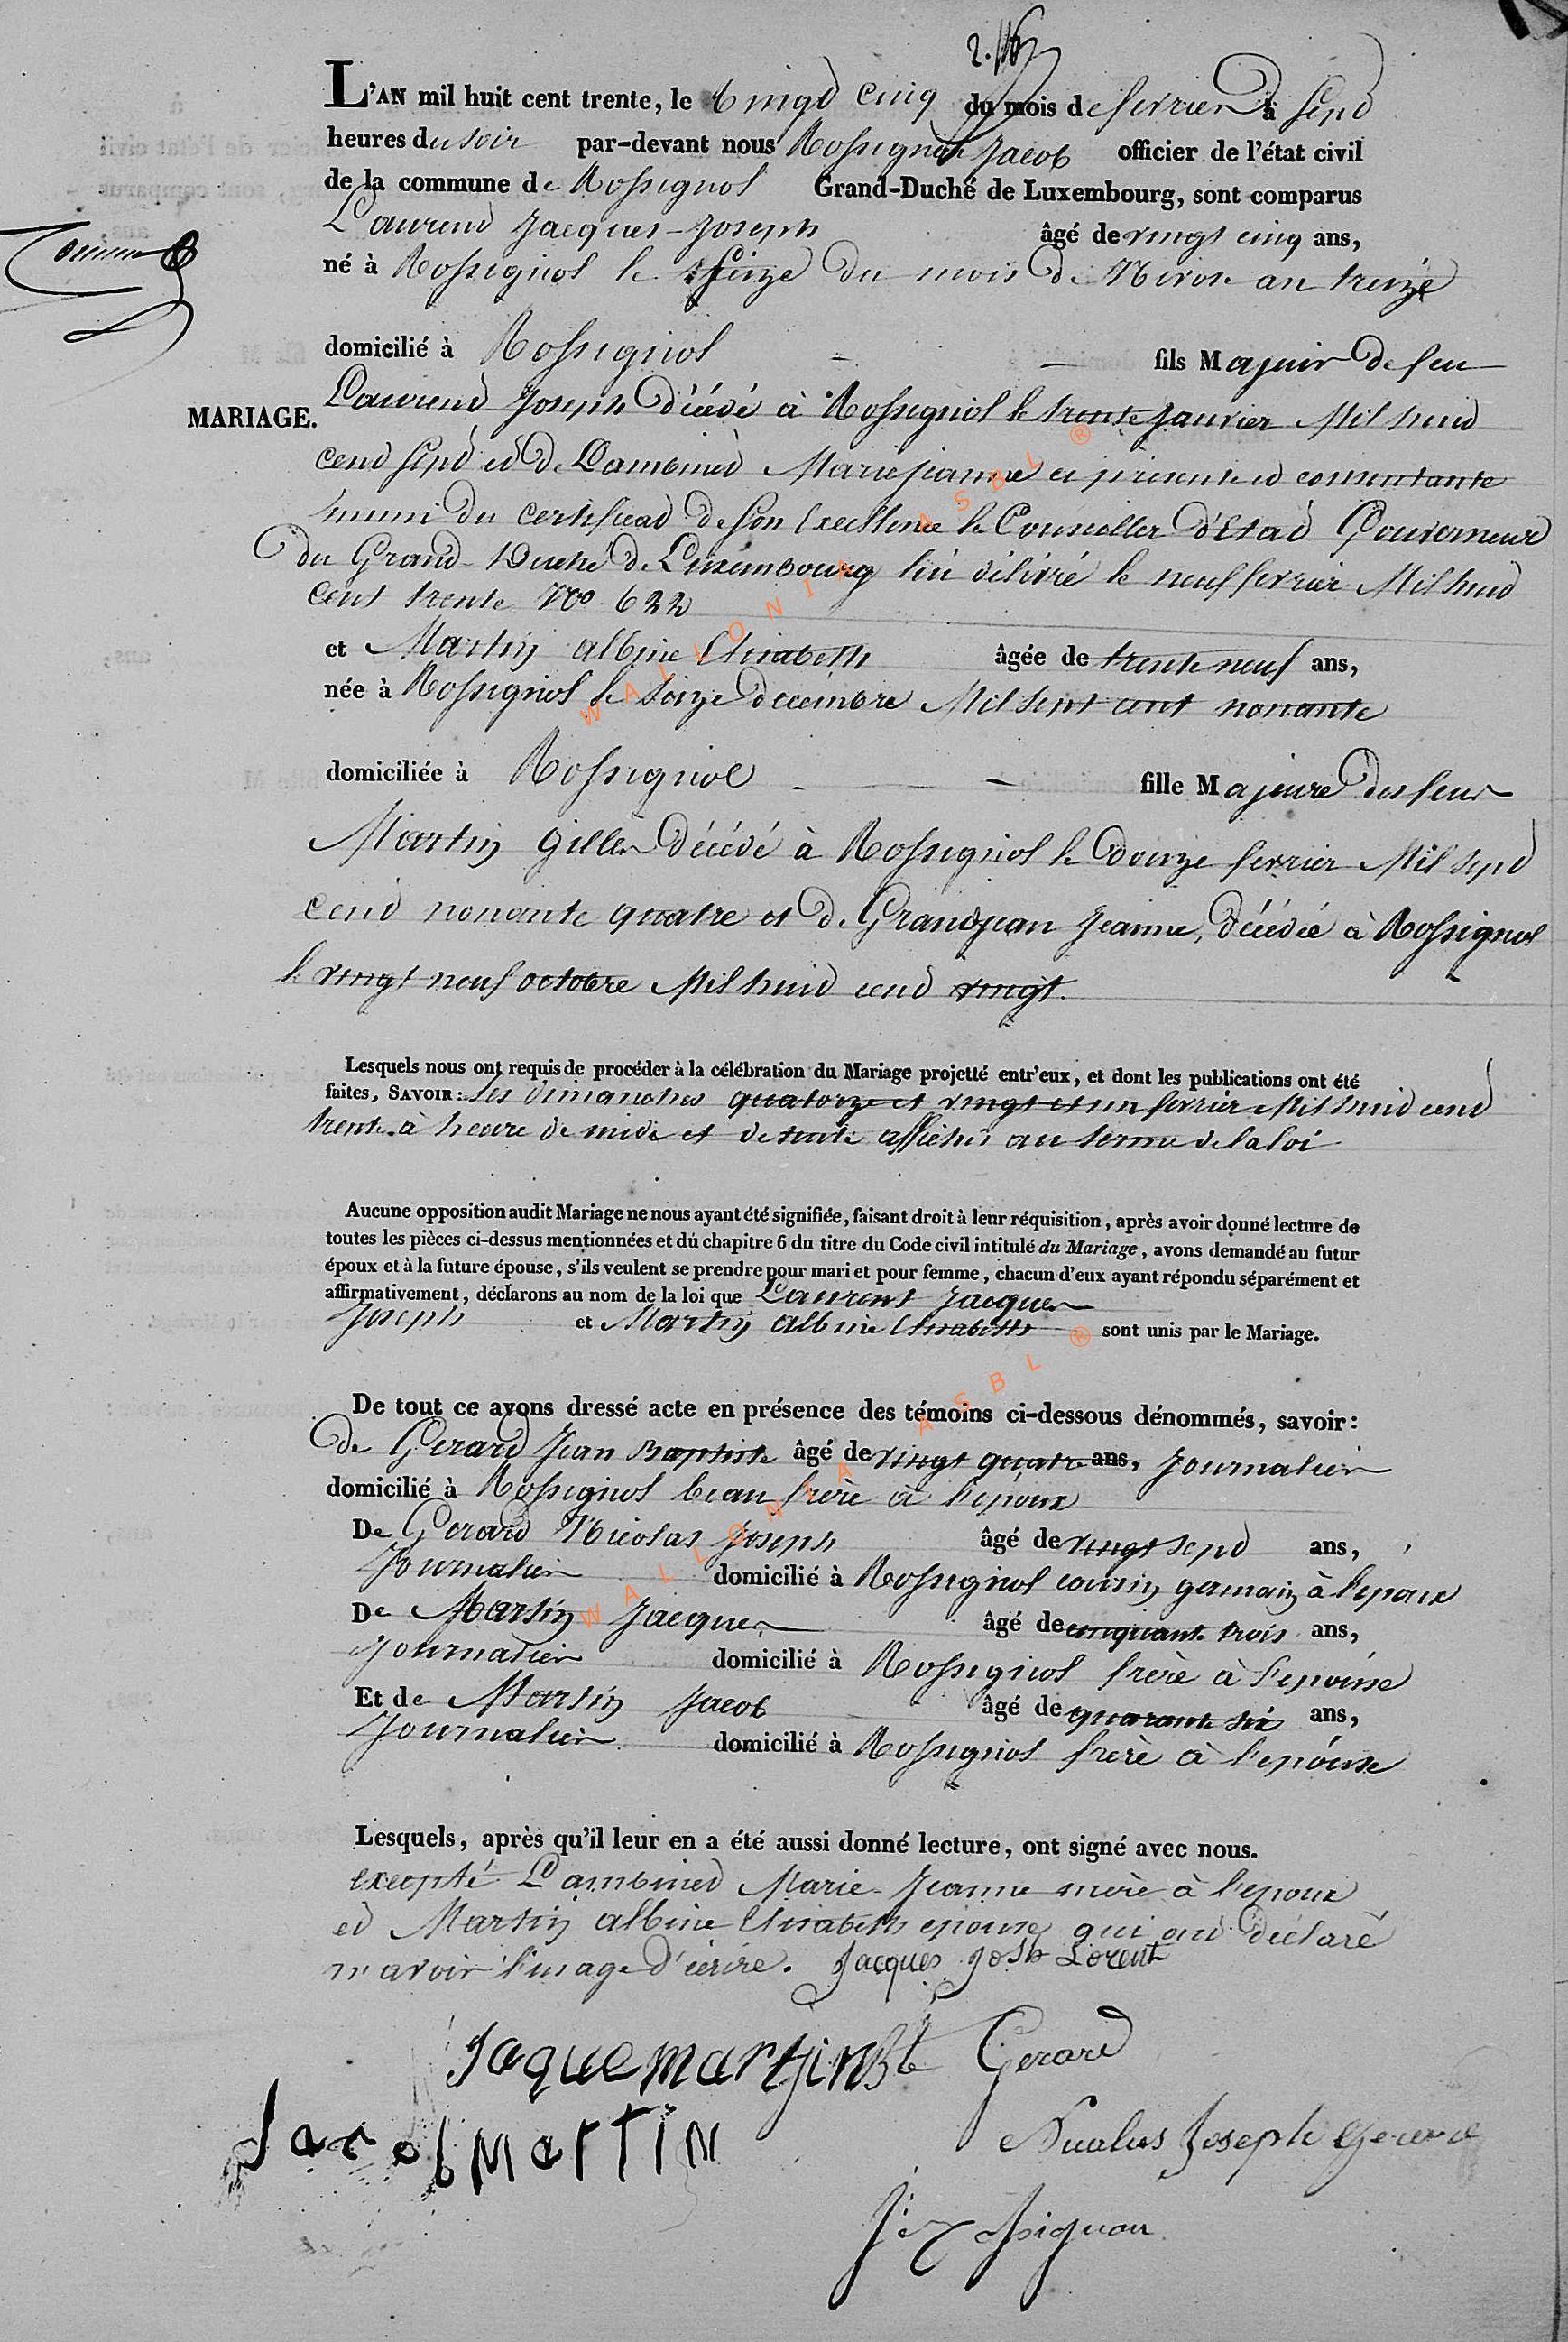 L'AN mil huit cent trente, le vingt cinq du mois de fevrier à sept
heures du soir par-devant nous Rossignon Jacob officier de l'état civil
de la commune de Rossignol Grand-Duché de Luxembourg, sont comparus
Laurent Jacques-Joseph âgé de vingt cinq ans,
né à Rossignol le seize du mois de Nivose an treize
domicilié à Rossignol fils Majeur de feu
MARIAGE.
Laurent Joseph décédé à Rossignol le trente Janvier Mil huit
cent sept et de Lambinet Marie Jeanne ci présente et consentante
muni du certificat de son Excellence le Conseiller d'Etat Gouverneur
du Grand-Duché de Luxembourg lui délivré le neuf fevrier Mil huit
cent trente No 622
et Martin albine Elisabeth âgée de trente neuf ans,
née à Rossignol le seize decembre Mil sept cent nonante
domiciliée à Rossignol fille Majeure des feux
Martin Gilles décédé à Rossignol le douze fevrier Mil sept
cent nonante quatre et de Grandjean Jeanne, décédée à Rossignol
le vingt neuf octobre Mil huit cent vingt.
Lesquels nous ont requis de procéder à la célébration du Mariage projetté entr'eux, et dont les publications ont été
faites, SAVOIR: les dimanches quatorze et vingt et un fevrier Mil huit cent
trente à heure de midi et de suite affichés au terme de la loi
Aucune opposition audit Mariage ne nous ayant été signifiée, faisant droit à leur réquisition, après avoir donné lecture de
toutes les pièces ci-dessus mentionnées et du chapitre 6 du titre du Code civil intitulé du Mariage, avons demandé au futur
époux et à la future épouse, s'ils veulent se prendre pour mari et pour femme, chacun d'eux ayant répondu séparément et
affirmativement, déclarons au nom de la loi que Laurent Jacques
Joseph et Martin albine Elisabeth sont unis par le Mariage.
De tout ce avons dressé acte en présence des témoins ci-dessous dénommés, savoir:
de Gerard Jean Baptiste âgé de vingt quatre ans, Journalier
domicilié à Rossignol beau frère à l'epoux
De Gerard Nicolas Joseph âgé de vingt sept ans,
Journalier domicilié à Rossignol cousin germain à l'epoux
De Martin Jacques âgé de cinquante trois ans,
Journalier domicilié à Rossignol frère à l'epouse
Et de Martin Jacob âgé de quarante six ans,
Journalier domicilié à Rossignol frère à l'epouse
Lesquels, après qu'il leur en a été aussi donné lecture, ont signé avec nous.
excepté Lambinet Marie-Jeanne mère à l'epoux
et Martin albine Elisabeth epouse qui ont déclaré
n'avoir l'usage d'ecrire. Jacques Josh Lorent
Jaque martjin Bte Gerard
Jacob MarTiN Nicolas Joseph Gerard
WALLONIA ASBL ®
WALLONIA ASBL ®